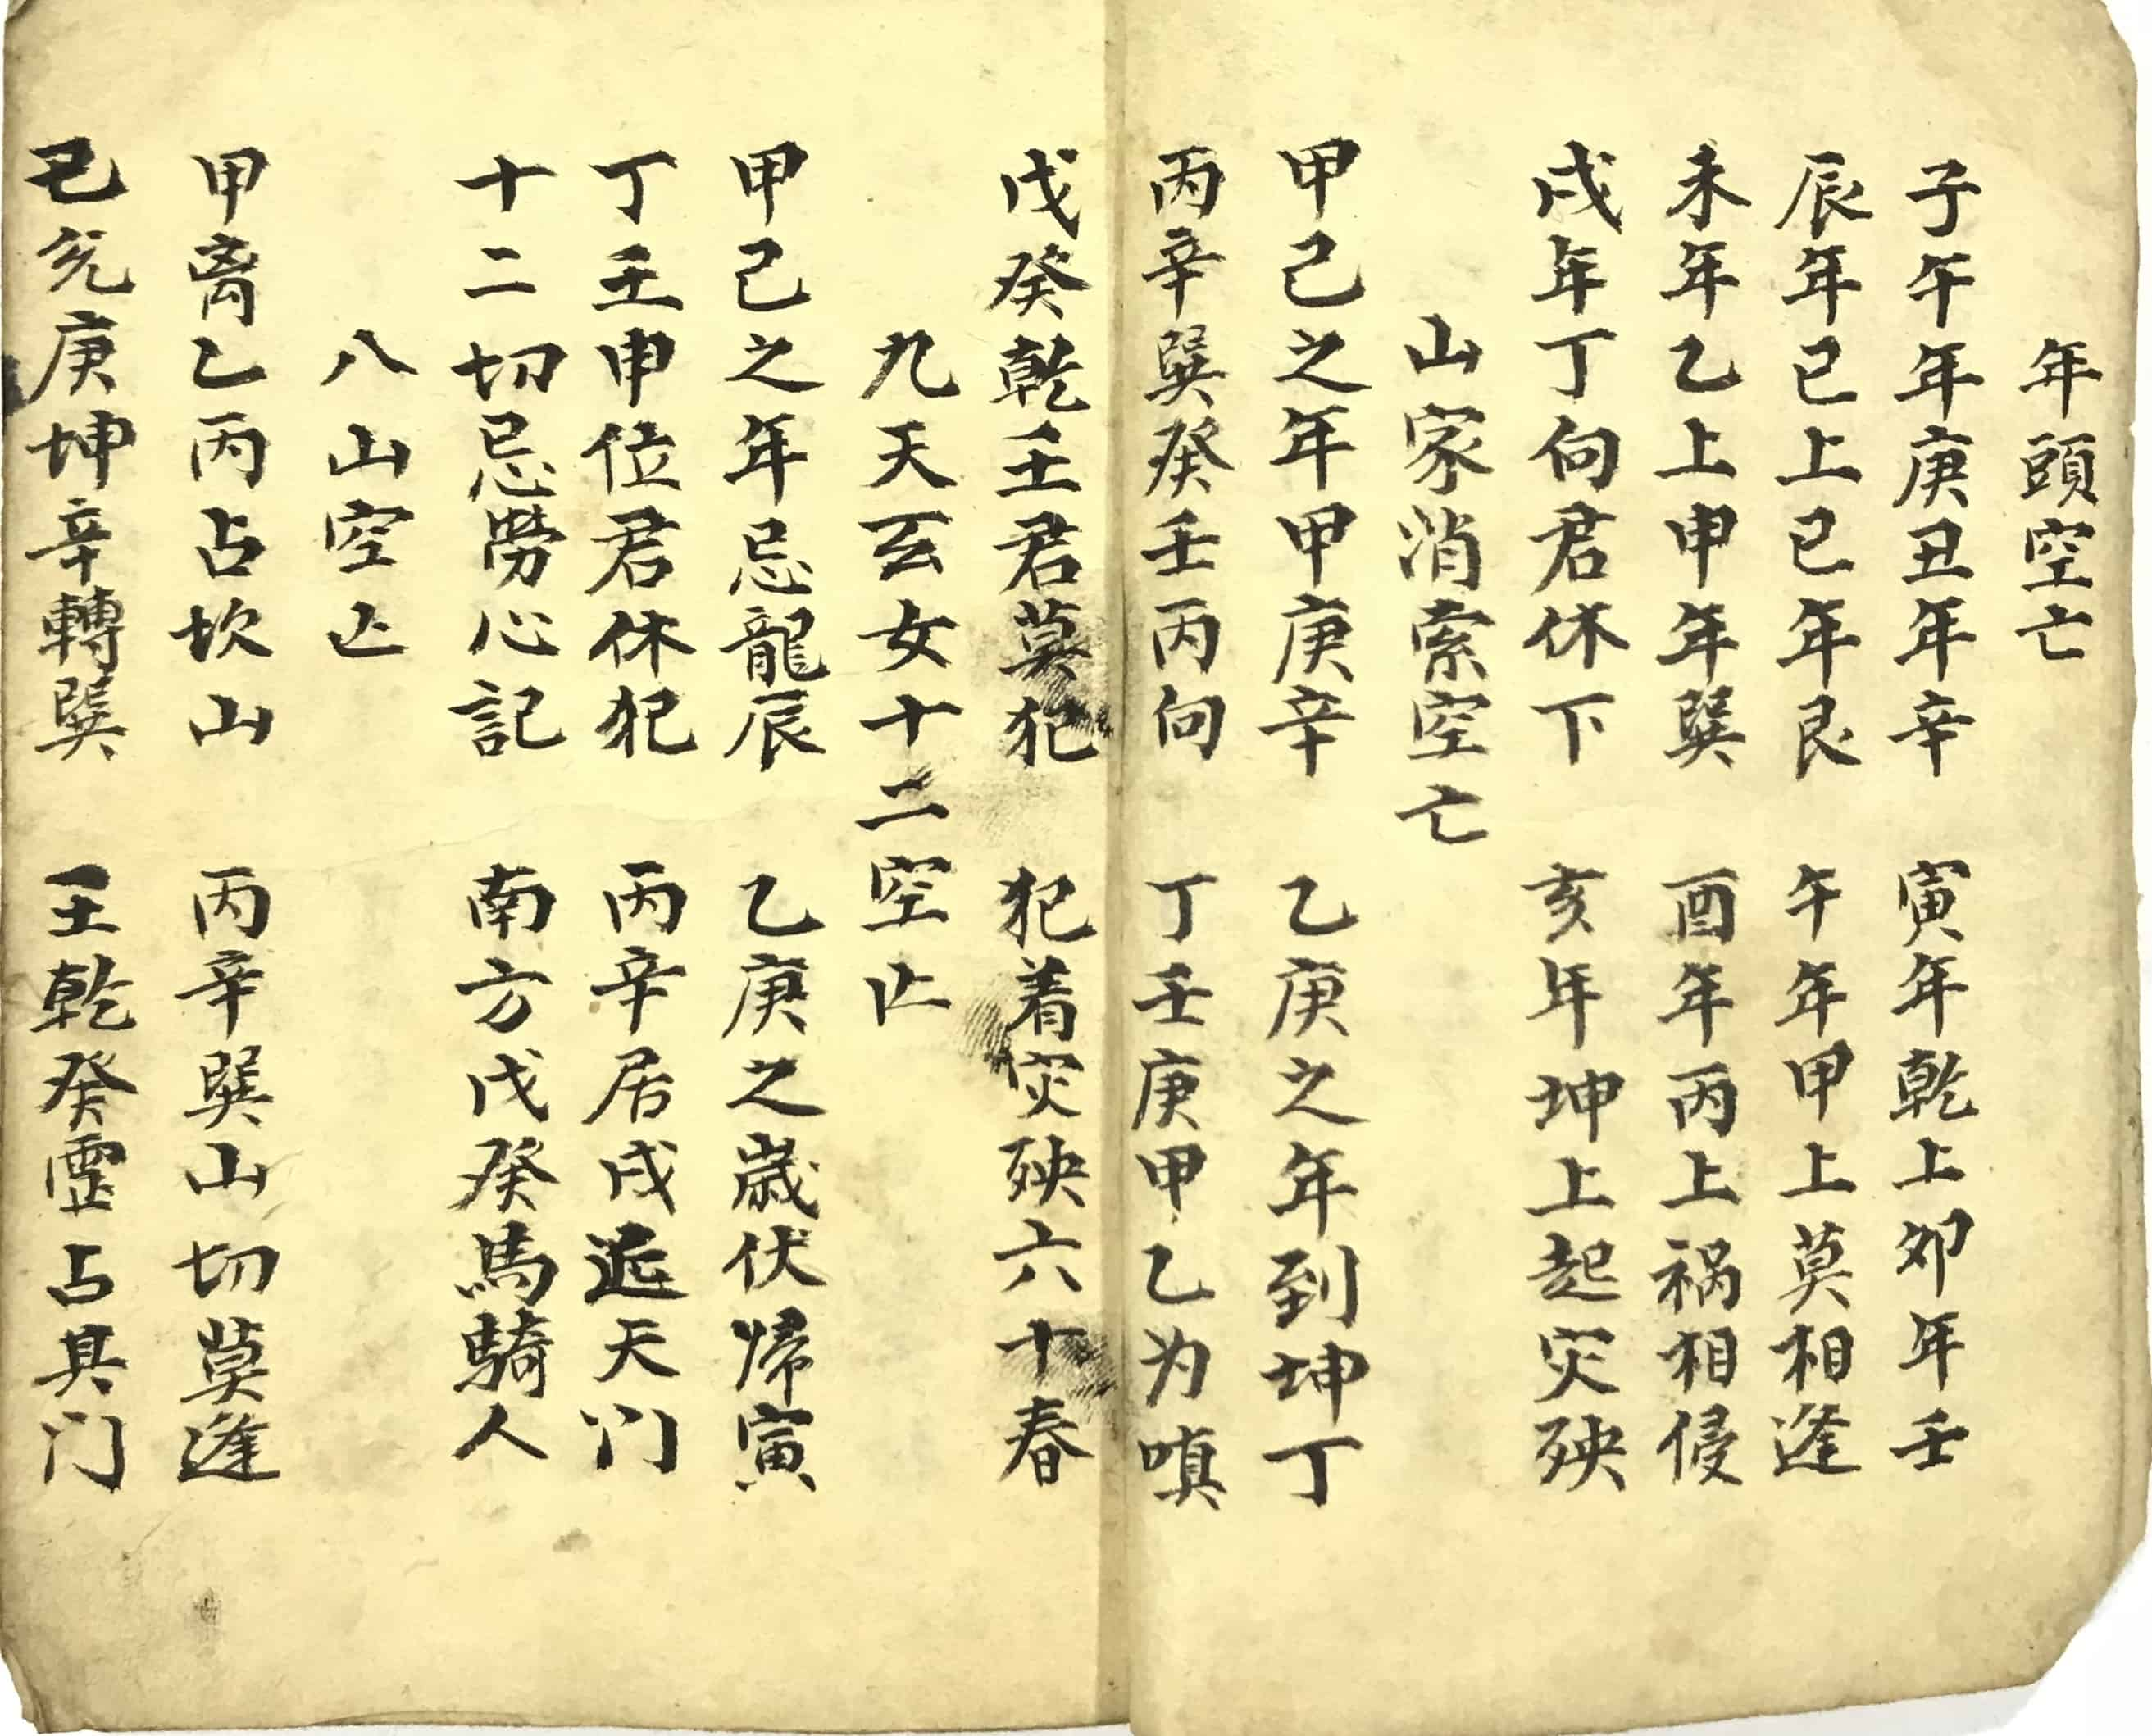 年頭空亡
子午年庚丑年辛 寅年乾上夘年壬
辰年已上巳年艮 午年甲上莫相逢
未年乙上申年巽 酉年丙上祸相侵
戌年丁向君休下 亥年坤上起灾殃
山家消索空亡
甲己之年甲庚辛 乙庚之年到坤丁
丙辛巽癸壬丙向 丁壬庚甲乙为嗔
戊癸乾壬君莫犯 犯着灾殃六十春
九天玄女十二空亡
甲己之年忌龍辰 乙庚之歳伏帰寅
丁壬申位君休犯 丙辛居戌天门
十二切忌劳心記 南方戊癸馬騎人
八山空亡
甲离乙丙占坎山 丙辛巽山切莫逢
己兑庚坤辛轉巽 壬乾癸占其门